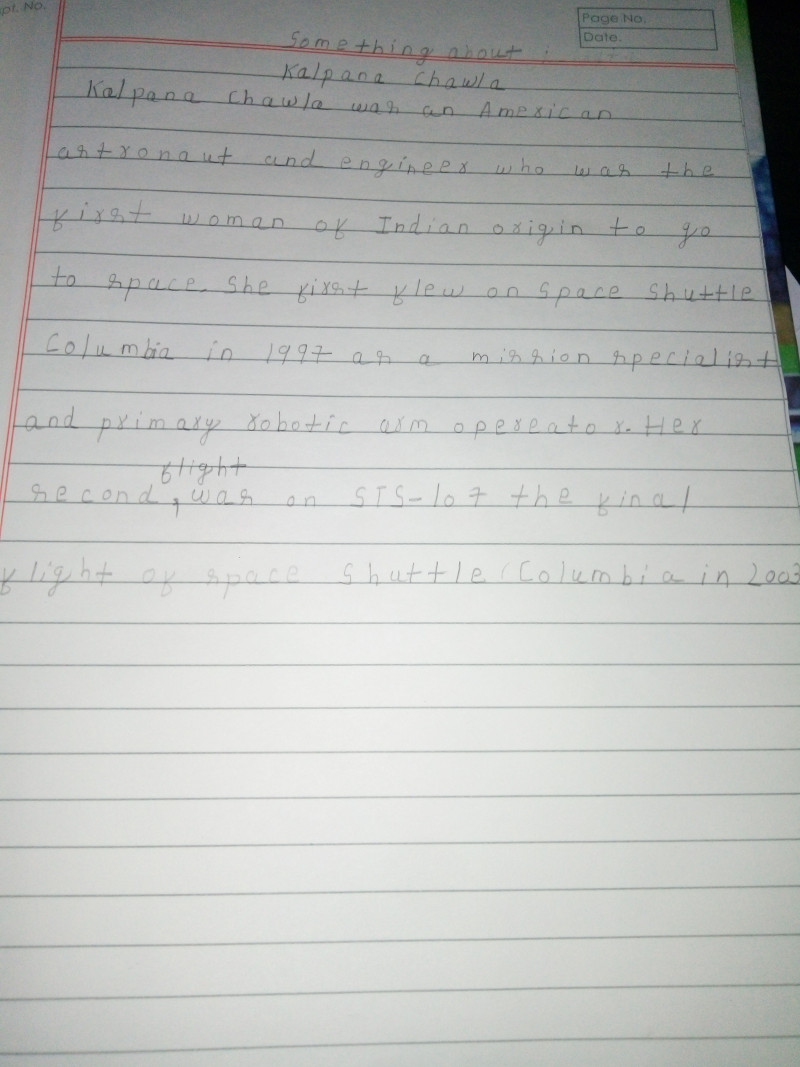 pt. No.
Page No.
Date.
Something about
Kalpana Chawla
Kalpana Chawla was an American
astronaut and engineer who was the
first woman of Indian origin to go
to space. She first flew on Space Shuttle
Columbia in 1997 as a mission specialist
and primary robotic arm opereator. Her
flight
second, was on STS-107 the final
flight of space Shuttle Columbia in 2003